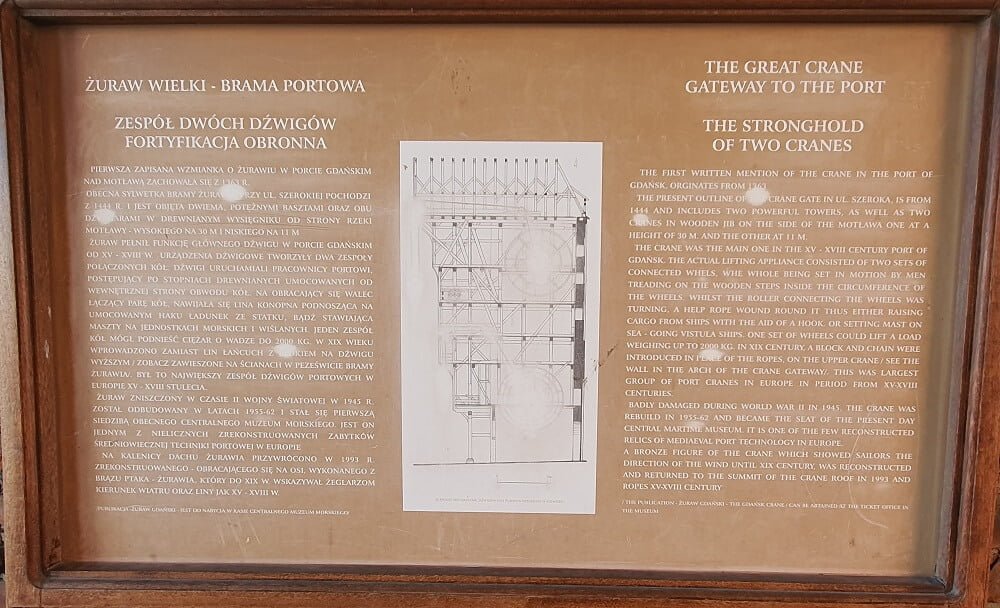 ŻURAW WIELKI - BRAMA PORTOWA
ZESPÓŁ DWÓCH DŹWIGÓW
FORTYFIKACJA OBRONNA
PIERWSZA ZAPISANA WZMIANKA O ŻURAWIU W PORCIE GDAŃSKIM
NAD MOTŁAWĄ ZACHOWAŁA SIĘ Z 1363 R.
OBECNA SYLWETKA BRAMY PRZY UL. SZEROKIEJ POCHODZI
Z 1444 R. I JEST OBJĘTA DWIEMA, POTĘŻNYMI BASZTAMI ORAZ OBU
W DREWNIANYM WYSIĘGNIKU OD STRONY RZEKI
MOTŁAWY - WYSOKIEGO NA 30 M I NISKIEGO NA 11 M
ŻURAW PEŁNIŁ FUNKCJĘ GŁÓWNEGO DŹWIGU W PORCIE GDAŃSKIM
OD XV - XVIII W. URZĄDZENIA DŹWIGOWE TWORZYŁY DWA ZESPOŁY
POŁĄCZONYCH KÓŁ. DŹWIGI URUCHAMIALI PRACOWNICY PORTOWI,
POSTĘPUJĄCY PO STOPNIACH DREWNIANYCH UMOCOWANYCH OD
WEWNĘTRZNEJ STRONY OBWODU KÓŁ. NA OBRACAJĄCY SIĘ WALEC
ŁĄCZĄCY PARĘ KÓŁ, NAWIJAŁA SIĘ LINA KONOPNA PODNOSZĄCA NA
UMOCOWANYM HAKU ŁADUNEK ZE STATKU, BĄDŹ STAWIAJĄCA
MASZTY NA JEDNOSTKACH MORSKICH I WIŚLANYCH. JEDEN ZESPÓŁ
KÓŁ MÓGŁ PODNIEŚĆ CIĘŻAR O WADZE DO 2000 KG. W XIX WIEKU
WPROWADZONO ZAMIAST LIN ŁAŃCUCH Z NA DŹWIGU
WYŻSZYM / ZOBACZ ZAWIESZONE NA ŚCIANACH W PRZEŚWICIE BRAMY
ŻURAWIA. BYŁ TO NAJWIĘKSZY ZESPÓŁ DŹWIGÓW PORTOWYCH W
EUROPIE XV - XVIII STULECIA.
ŻURAW ZNISZCZONY W CZASIE II WOJNY ŚWIATOWEJ W 1945 R.
ZOSTAŁ ODBUDOWANY W LATACH 1955-62 I STAŁ SIĘ PIERWSZĄ
SIEDZIBĄ OBECNEGO CENTRALNEGO MUZEUM MORSKIEGO. JEST ON
JEDNYM Z NIELICZNYCH ZREKONSTRUOWANYCH ZABYTKÓW
ŚREDNIOWIECZNEJ TECHNIKI PORTOWEJ W EUROPIE
NA KALENICY DACHU ŻURAWIA PRZYWRÓCONO W 1993 R.
ZREKONSTRUOWANEGO - OBRACAJĄCEGO SIĘ NA OSI, WYKONANEGO Z
BRĄZU PTAKA - ŻURAWIA, KTÓRY DO XIX W. WSKAZYWAŁ ŻEGLARZOM
KIERUNEK WIATRU ORAZ LINY JAK XV - XVIII W.
/PUBLIKACJA -ŻURAW GDAŃSKI - JEST DO NABYCIA W KASIE CENTRALNEGO MUZEUM MORSKIEGO/
THE GREAT CRANE
GATEWAY TO THE PORT
THE STRONGHOLD
OF TWO CRANES
THE FIRST WRITTEN MENTION OF THE CRANE IN THE PORT OF
GDAŃSK, ORGINATES FROM 1363
THE PRESENT OUTLINE CRANE GATE IN UL. SZEROKA, IS FROM
1444 AND INCLUDES TWO POWERFUL TOWERS, AS WELL AS TWO
CRANES IN WOODEN JIB ON THE SIDE OF THE MOTŁAWA ONE AT A
HEIGHT OF 30 M. AND THE OTHER AT 11 M.
THE CRANE WAS THE MAIN ONE IN THE XV - XVIII CENTURY PORT OF
GDANSK. THE ACTUAL LIFTING APPLIANCE CONSISTED OF TWO SETS OF
CONNECTED WHELS, WHE WHOLE BEING SET IN MOTION BY MEN
TREADING ON THE WOODEN STEPS INSIDE THE CIRCUMFERENCE OF
THE WHEELS. WHILST THE ROLLER CONNECTING THE WHEELS WAS
TURNING, A HELP ROPE WOUND ROUND IT THUS EITHER RAISING
CARGO FROM SHIPS WITH THE AID OF A HOOK, OR SETTING MAST ON
SEA - GOING VISTULA SHIPS. ONE SET OF WHEELS COULD LIFT A LOAD
WEIGHING UP TO 2000 KG. IN XIX CENTURY, A BLOCK AND CHAIN WERE
INTRODUCED IN PLACE OF THE ROPES, ON THE UPPER CRANE / SEE THE
WALL IN THE ARCH OF THE CRANE GATEWAY/. THIS WAS LARGEST
GROUP OF PORT CRANES IN EUROPE IN PERIOD FROM XV-XVIII
CENTURIES.
BADLY DAMAGED DURING WORLD WAR II IN 1945, THE CRANE WAS
REBUILD IN 1955-62 AND BECAME THE SEAT OF THE PRESENT DAY
CENTRAL MARTIME MUSEUM. IT IS ONE OF THE FEW RECONSTRUCTED
RELICS OF MEDIAEVAL PORT TECHNOLOGY IN EUROPE.
A BRONZE FIGURE OF THE CRANE WHICH SHOWED SAILORS THE
DIRECTION OF THE WIND UNTIL XIX CENTURY, WAS RECONSTRUCTED
AND RETURNED TO THE SUMMIT OF THE CRANE ROOF IN 1993 AND
ROPES XV-XVIII CENTURY
/THE PUBLICATION - ŻURAW GDAŃSKI - THE GDANSK CRANE / CAN BE ABTAINED AT THE TICKET OFFICE IN
THE MUSEUM